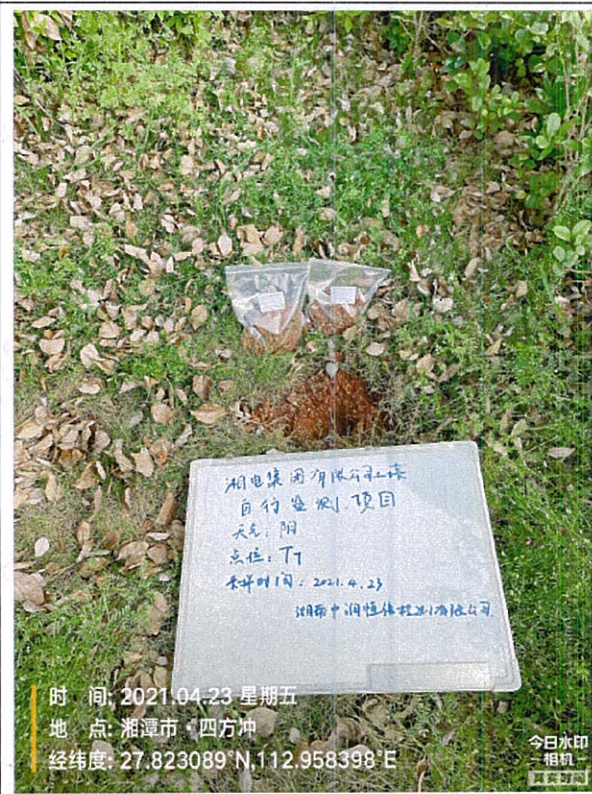 湘电集团有限公司土壤
自行监测项目
天气:阴
点位:T7
采样时间:2021.4.23
湖南中润恒信检测有限公司
时 间: 2021.04.23 星期五
地 点: 湘潭市·四方冲
经纬度: 27.823089°N,112.958398°E
今日水印
-相机-
真实时间